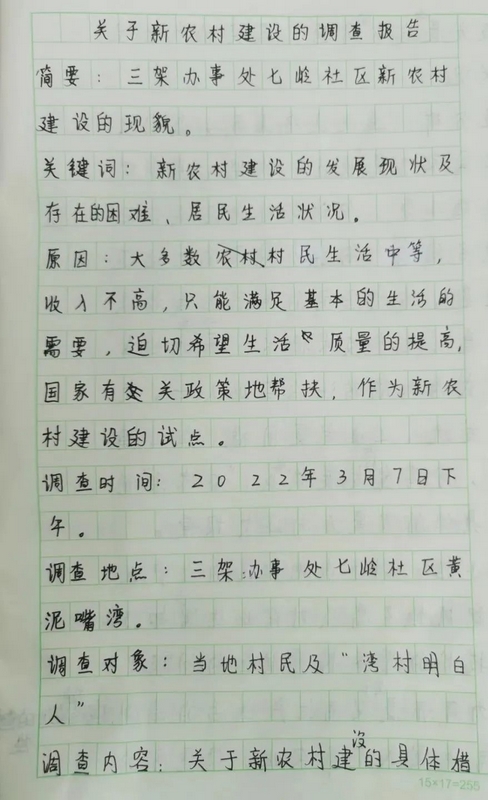 关于新农村建设的调查报告
简要：三架办事处七岭社区新农村
建设的现貌。
关键词：新农村建设的发展现状及
存在的困难、居民生活状况。
原因：大多数农村村民生活中等，
收入不高，只能满足基本的生活的
需要，迫切希望生活质量的提高，
国家有关政策地帮扶，作为新农
村建设的试点。
调查时间：2022年3月7日下
午。
调查地点：三架办事处七岭社区黄
泥嘴湾。
调查对象：当地村民及“湾村明白
人”
调查内容：关于新农村建设的具体措
15×17=255